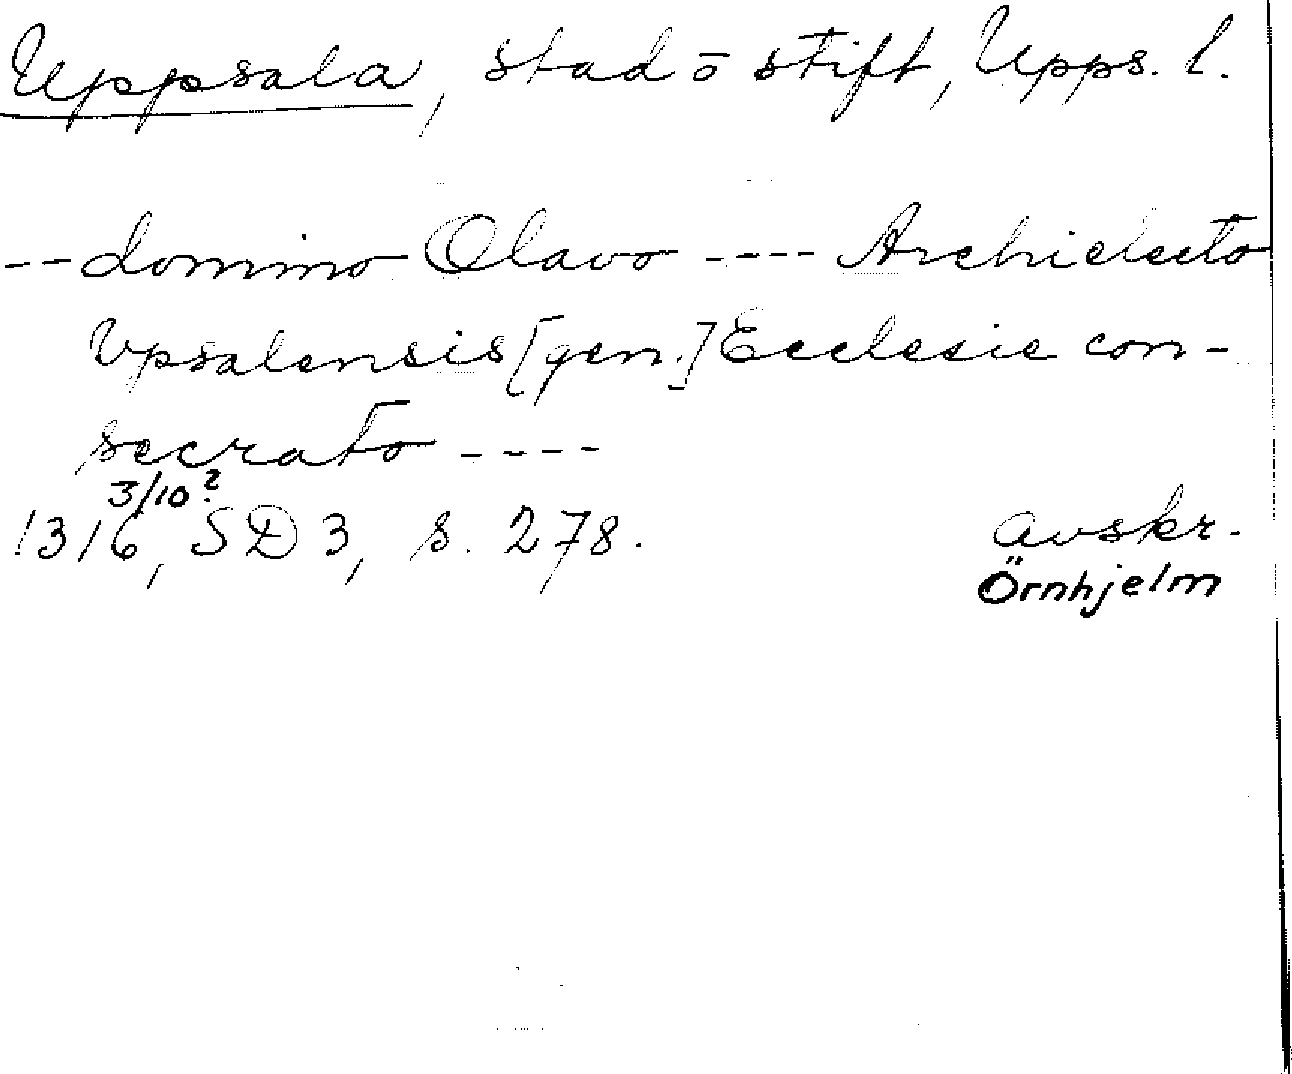 Uppsala, stad o stift, Upps. l.
-- domino Olavo ---- Archielecto
Vpsalensis [gen.] Ecclesie con-
secrato ----
3/10?
1316, SD 3, s. 278. avskr.
Örnhjelm